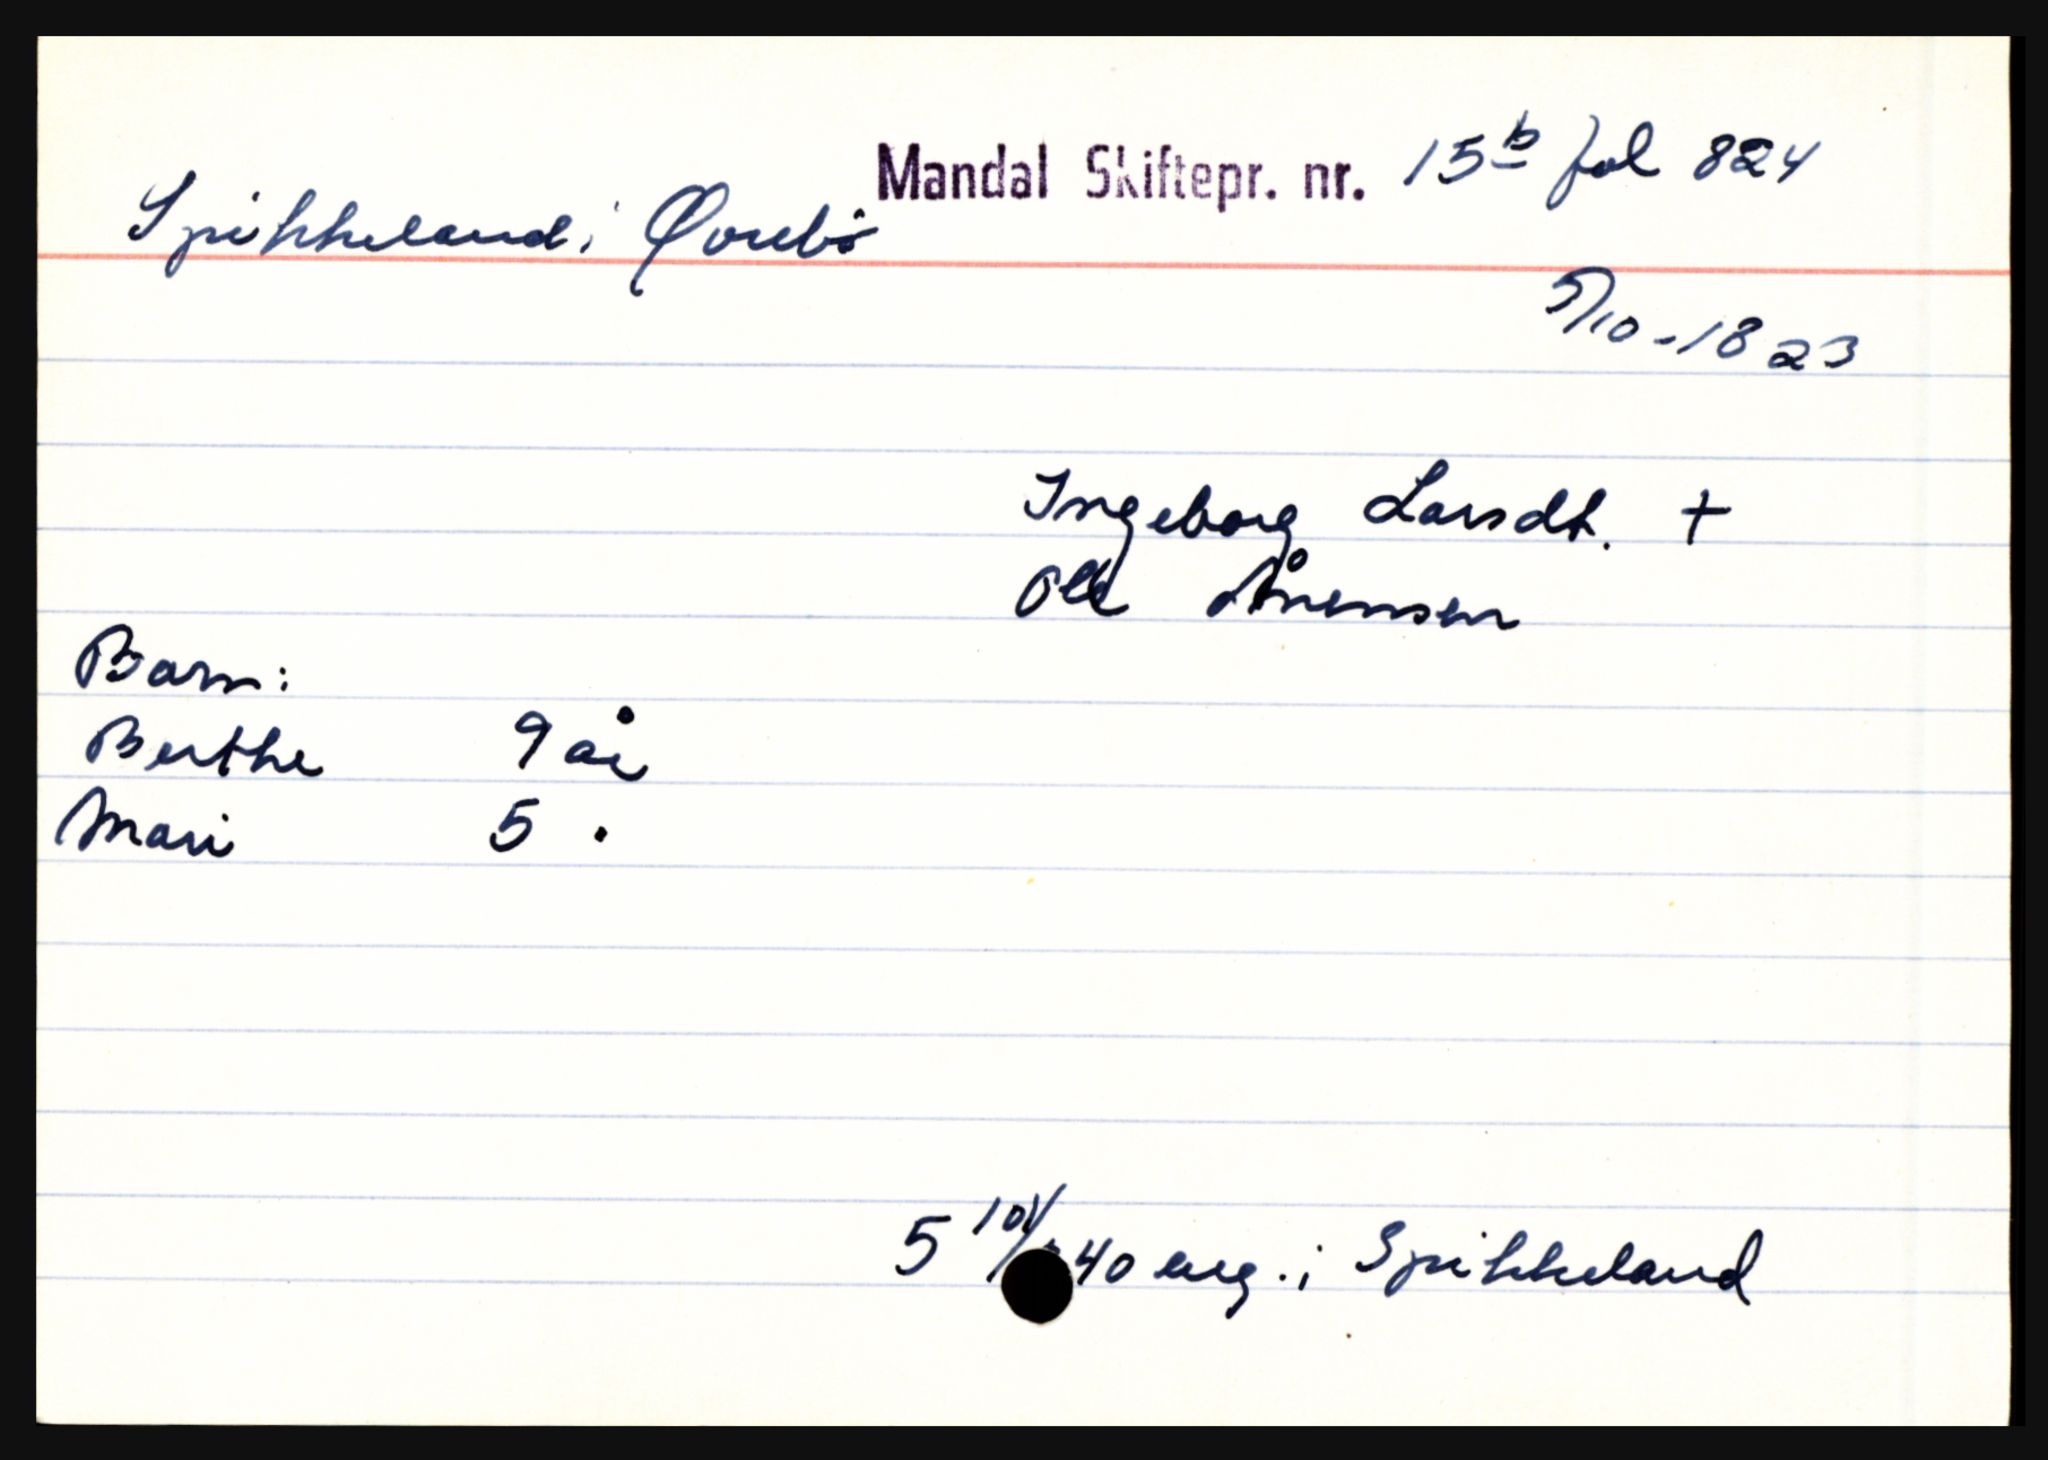 Mandal Skiftepr. nr. 15b fol 824
Spikkeland i Øvrebø
5/10-1823
Ingeborg Larsdt. +
Ole Ånensen
Barn:
Berthe 9 år
Mari 5 "
5 40 eng. i Spikkeland